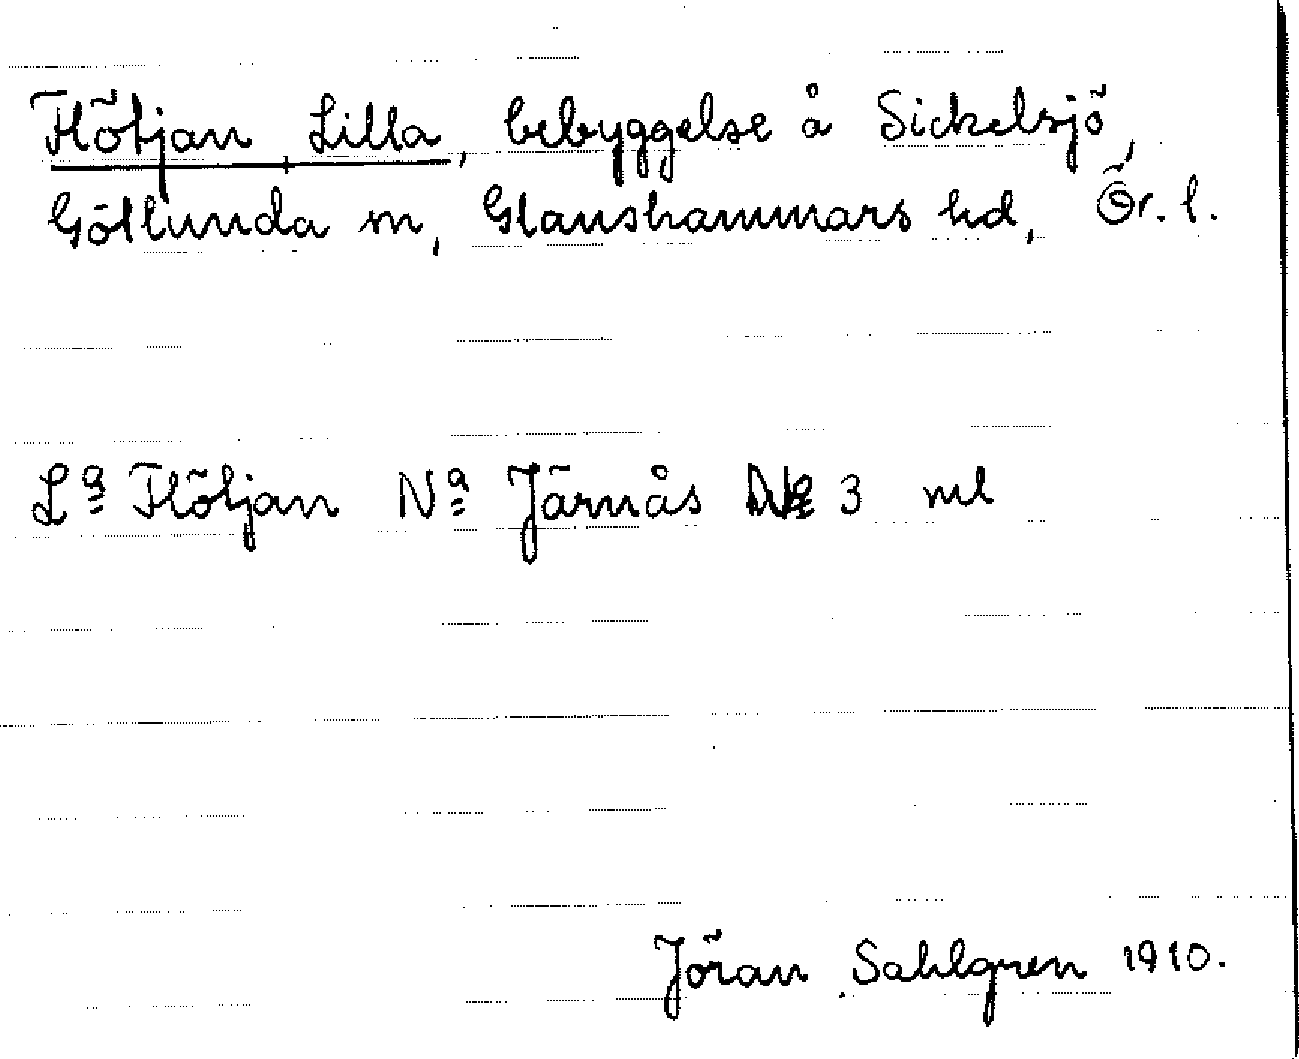 Flötjan Lilla, bebyggelse å Sickelsjö,
Götlunda sn, Glanshammars hd, Ör. l.
Lª Flötjan Nª Järnäs № 3 ml
Jöran Sahlgren 1910.